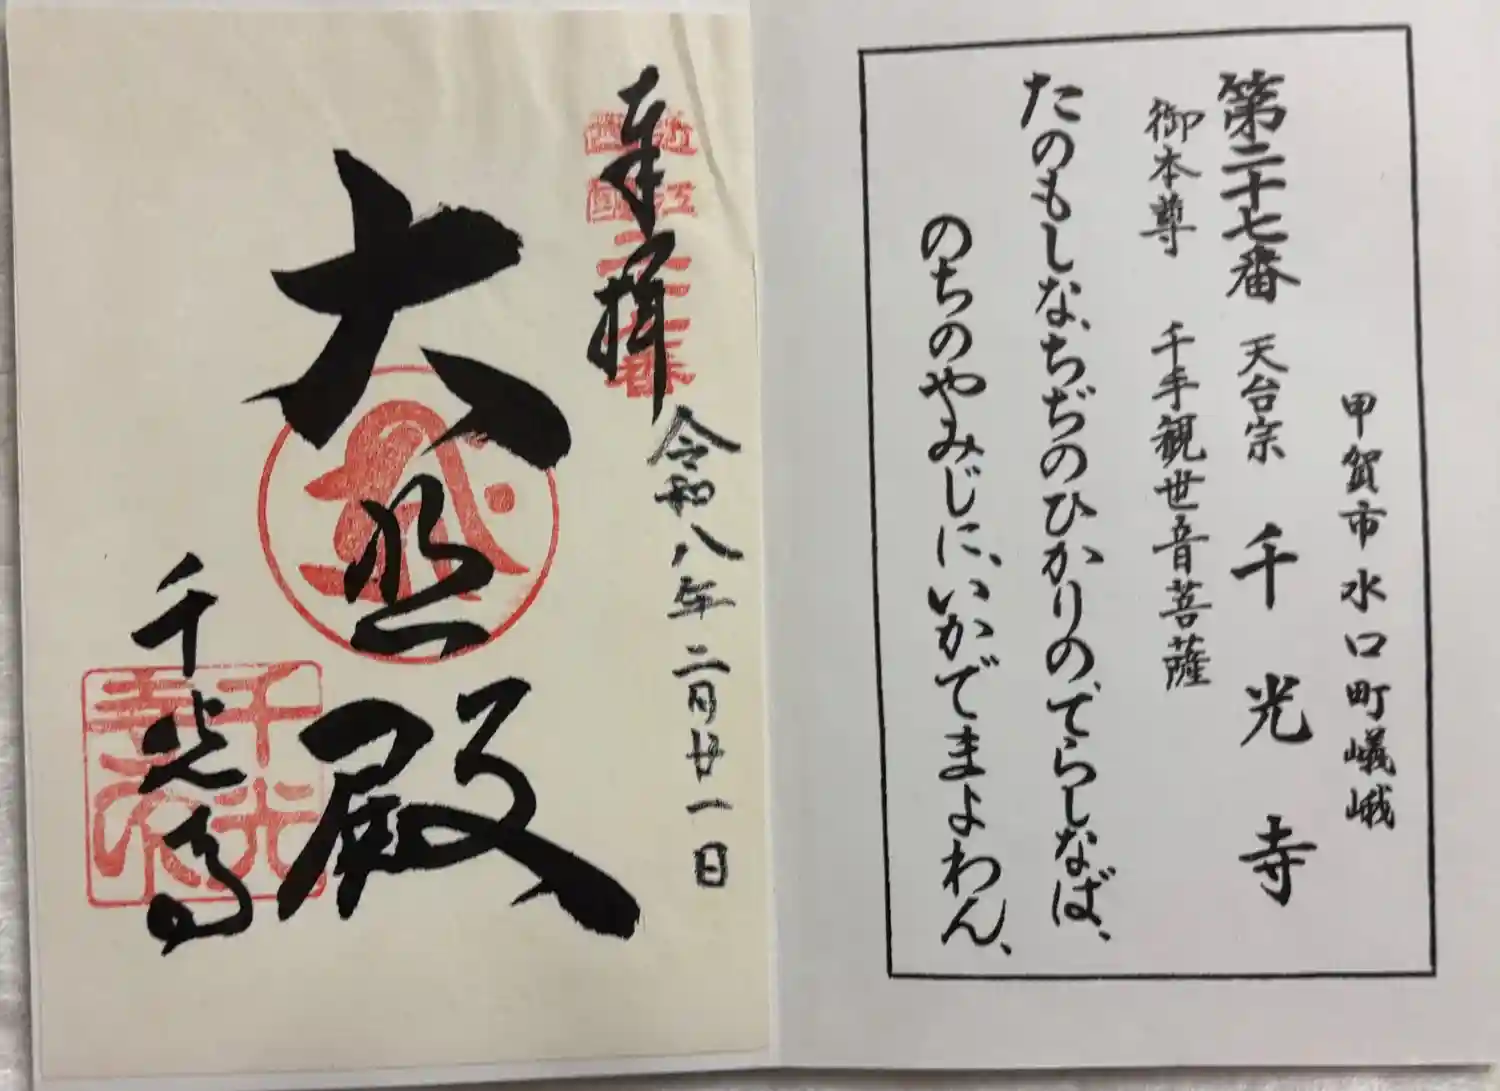 甲賀市水口町嶬峨
第二十七番 天台宗 千光寺
御本尊 千手観世音菩薩
たのもしな、ちぢのひかりの、てらしなば、
のちのやみじに、いかでまよわん、
奉拝
近江
西国
二十七番
令和八年二月廿一日
大悲殿
千光寺
千光
寺印